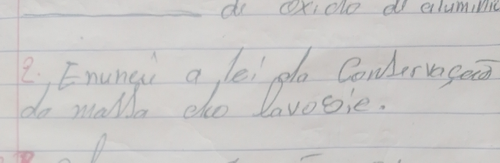 de oxido de alumínio
2. Enuncii a lei da Conservação
da massa do lavosie.